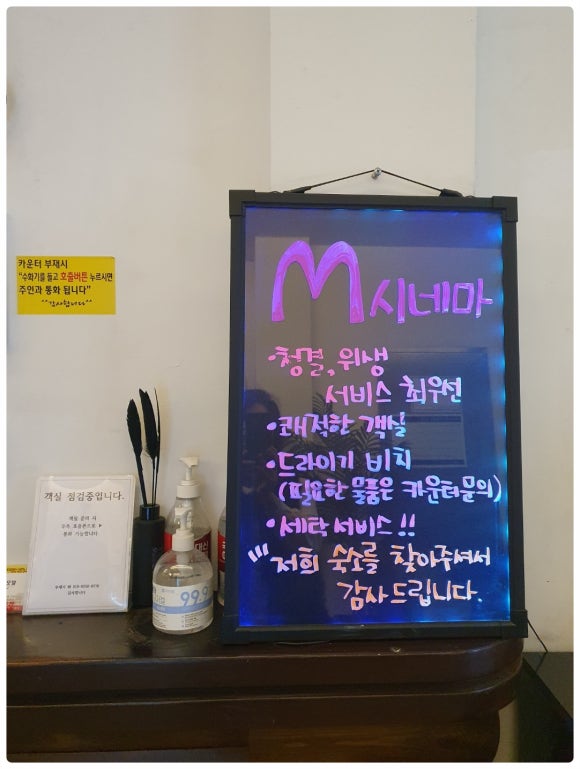 카운터 부재시
"수화기를 들고 호출버튼 누르시면
주인과 통화 됩니다"
^^감사합니다^^
M 시네마
•청결, 위생
서비스 최우선
•쾌적한 객실
•드라이기 비치
(필요한 물품은 카운터문의)
•세탁서비스!!
저희 숙소를 찾아주셔서
감사드립니다.
객실 점검중입니다.
객실 문의 시
우측 호출폰으로 ▶
통화 가능합니다
감사합니다
99.9